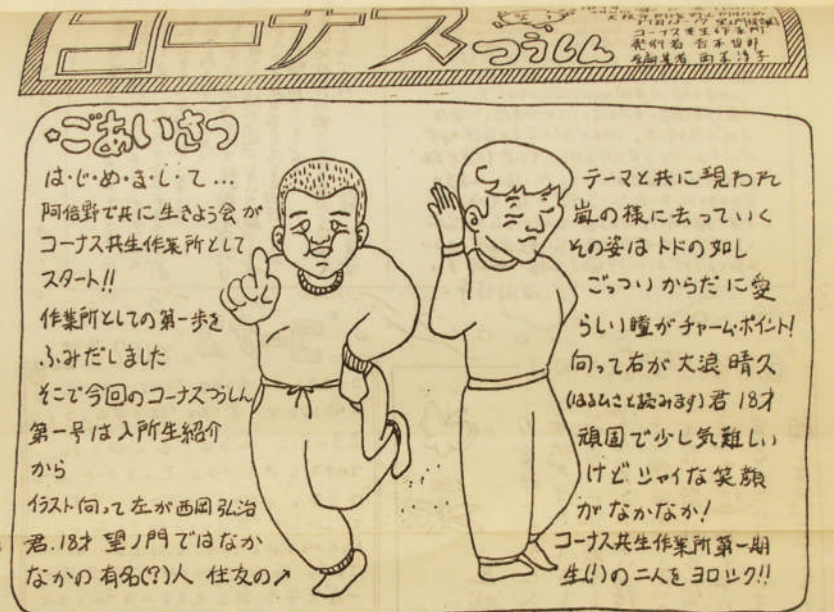 コーナス
つうしん
コーナス共生作業所
ごあいさつ
は・じ・め・ま・し・て…
阿倍野で共に生きよう会が
コーナス共生作業所として
スタート!!
作業所としての第一歩を
ふみだしました
そこで今回のコーナスつうしん
第一号は入所生紹介
から
イラスト向って左が西岡弘治
君.18才 望ノ門ではなか
なかの有名(?)人 住友の↗
テーマと共に現われ
嵐の様に去っていく
その姿はトドの如し
ごっついからだに愛
らしい瞳がチャーム・ポイント!
向って右が大浪晴久
(はるひさと読みます)君 18才
頑固で少し気難しい
けどシャイな笑顔
がなかなか!
コーナス共生作業所第一期
生(!)の二人をヨロシク!!